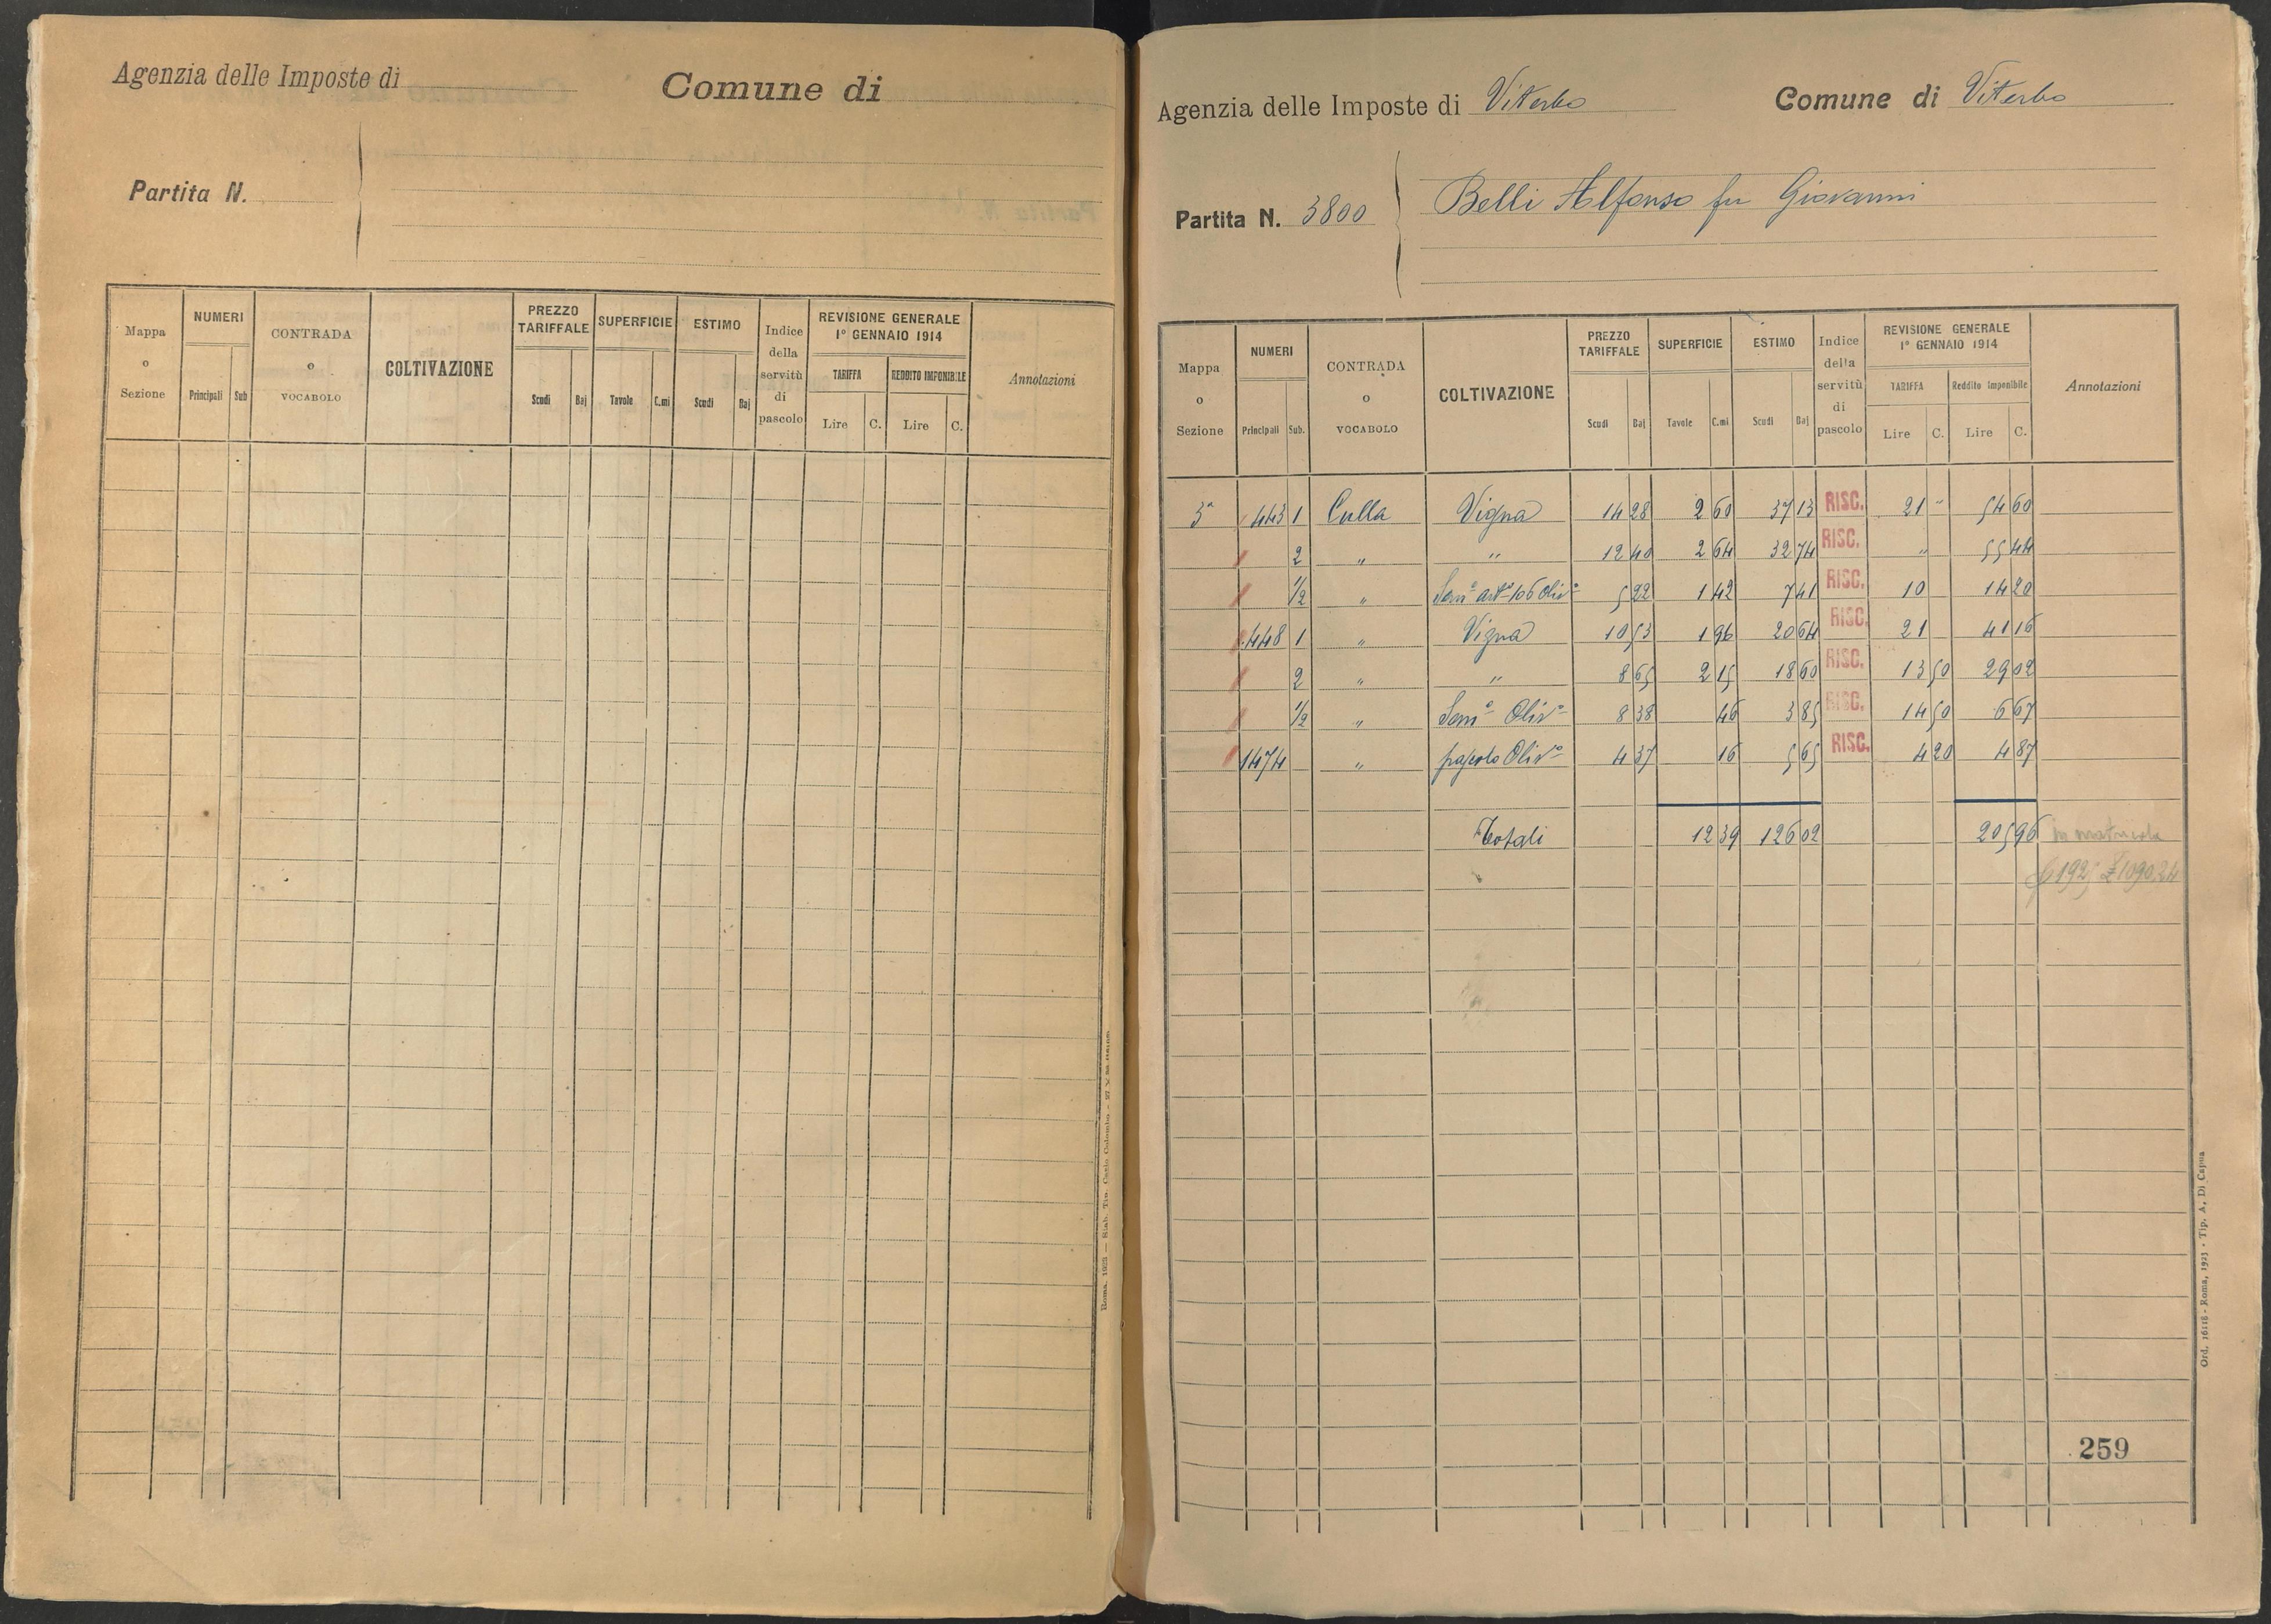 Agenzia delle Imposte di
Comune di
Partita N.
Mappa o Sezione | NUMERI Principali Sub | CONTRADA o VOCABOLO | COLTIVAZIONE | PREZZO TARIFFALE Scudi Baj | SUPERFICIE Tavole C.mi | ESTIMO Scudi Baj | Indice della servitù di pascolo | REVISIONE GENERALE 1º GENNAIO 1914 TARIFFA Lire C. REDDITO IMPONIBILE Lire C. | Annotazioni
Agenzia delle Imposte di Viterbo
Comune di Viterbo
Partita N. 3800
Belli Alfonso fu Giovanni
Mappa o Sezione | NUMERI Principali Sub. | CONTRADA o VOCABOLO | COLTIVAZIONE | PREZZO TARIFFALE Scudi Baj | SUPERFICIE Tavole C.mi | ESTIMO Scudi Baj | Indice della servitù di pascolo | REVISIONE GENERALE 1º GENNAIO 1914 TARIFFA Lire C. Reddito Imponibile Lire C. | Annotazioni
3ª 443 1 Culla Vigna 14 28 2 60 37 13 RISC. 21 " 54 60
2 " " 12 40 2 64 32 74 RISC. " 55 44
1/2 " Semº artº 106 Olivº 5 22 1 42 7 41 RISC. 10 14 20
448 1 " Vigna 10 53 1 96 20 64 RISC. 21 41 16
2 " " 8 65 2 15 18 60 RISC. 13 50 29 02
1/2 " Semº Olivº 8 38 46 3 85 RISC. 14 50 6 67
1474 " pascolo Olivº 4 37 1 16 5 65 RISC. 4 20 4 87
Totali 12 39 126 02 205 96 in matricola
1925 £ 1090.24
259
Roma, 1923 — Stab. Tip. Carlo Colombo
Ord. 16118 - Roma, 1923 - Tip. A. Di Capua